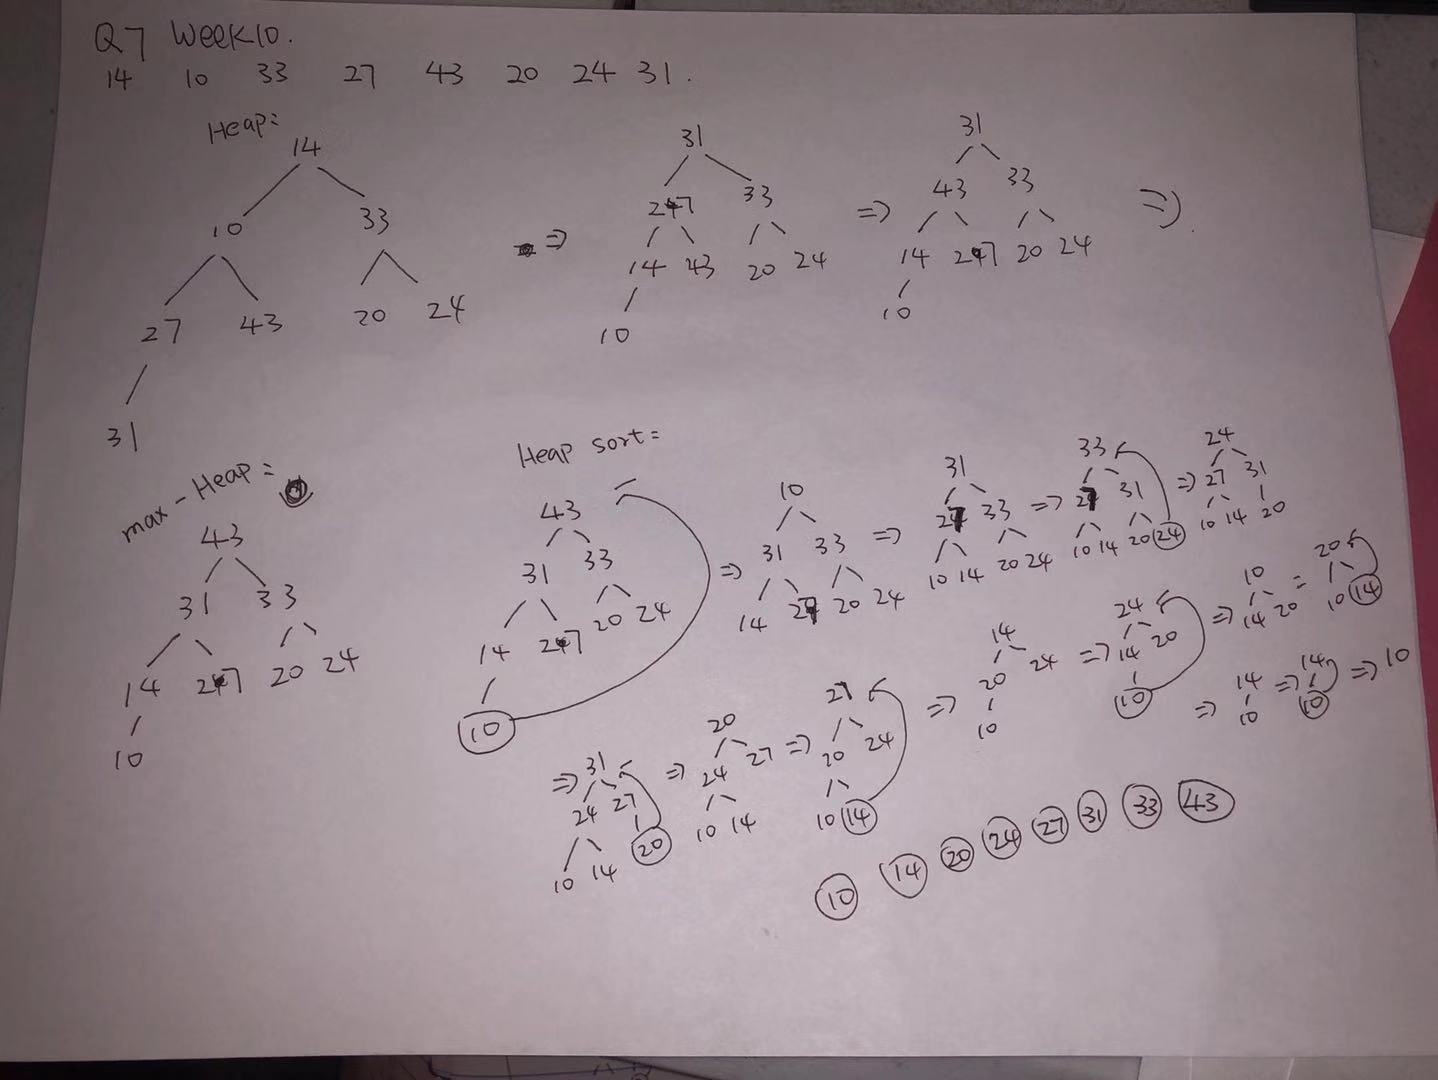 Q7 Week10.
14 10 33 27 43 20 24 31.
Heap:
14
10 33
27 43 20 24
31
=>
31
27 33
14 43 20 24
10
=>
31
43 33
14 27 20 24
10
=>
max-Heap:
43
31 33
14 27 20 24
10
Heap sort:
43
31 33
14 27 20 24
10
=>
10
31 33
14 27 20 24
=>
31
27 33
10 14 20 24
=>
33
27 31
10 14 20 24
=>
24
27 31
10 14 20
=>
31
24 27
10 14 20
=>
20
24 27
10 14
=>
27
20 24
10 14
=>
14
20 24
10
=>
24
14 20
10
=>
10
14 20
=
20
10 14
=>
14
10
=>
14
10
=> 10
10 14 20 24 27 31 33 43